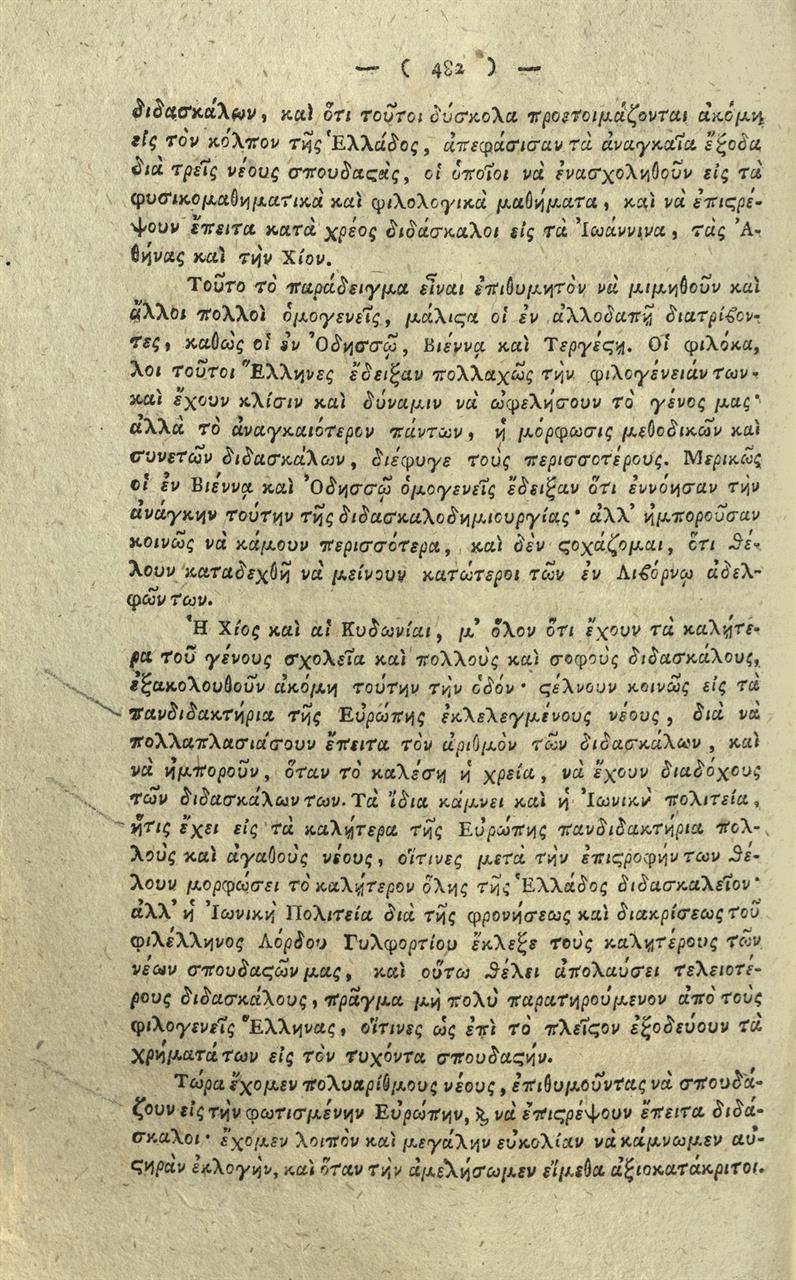 — ( 482 ) —
διδασκάλων, καὶ ὅτι τοῦτοι δύσκολα προετοιμάζονται ἀκόμη
εἰς τὸν κόλπον τῆς Ἑλλάδος, ἀπεφάσισαν τὰ ἀναγκαῖα ἔξοδα
διὰ τρεῖς νέους σπουδαϛὰς, οἱ ὁποῖοι νὰ ἐνασχοληθοῦν εἰς τὰ
φυσικομαθηματικὰ καὶ φιλολογικὰ μαθήματα, καὶ νὰ ἐπιϛρέ-
ψουν ἔπειτα κατὰ χρέος διδάσκαλοι εἰς τὰ Ἰωάννινα, τὰς Ἀ-
θήνας καὶ τὴν Χίον.
Τοῦτο τὸ παράδειγμα εἶναι ἐπιθυμητὸν νὰ μιμηθοῦν καὶ
ἄλλοι πολλοὶ ὁμογενεῖς, μάλιϛα οἱ ἐν ἀλλοδαπῇ διατρίϐον-
τες, καθὼς οἱ ἐν Ὀδησσῷ, Βιέννᾳ καὶ Τεργέϛῃ. Οἱ φιλόκα,
λοι τοῦτοι Ἕλληνες ἔδειξαν πολλαχῶς τὴν φιλογένειάν των·
καὶ ἔχουν κλίσιν καὶ δύναμιν νὰ ὠφελήσουν τὸ γένος μας·
ἀλλὰ τὸ ἀναγκαιότερον πάντων, ἡ μόρφωσις μεθοδικῶν καὶ
συνετῶν διδασκάλων, διέφυγε τοὺς περισσοτέρους. Μερικῶς
οἱ ἐν Βιέννᾳ καὶ Ὀδησσῷ ὁμογενεῖς ἔδειξαν ὅτι ἐννόησαν τὴν
ἀνάγκην τούτην τῆς διδασκαλοδημιουργίας· ἀλλ' ἠμποροῦσαν
κοινῶς νὰ κάμουν περισσότερα, καὶ δὲν ϛοχάζομαι, ὅτι θέ-
λουν καταδεχθῆ νὰ μείνουν κατώτεροι τῶν ἐν Λιϐόρνῳ ἀδελ-
φῶν των.
Ἡ Χίος καὶ αἱ Κυδωνίαι, μ' ὅλον ὅτι ἔχουν τὰ καλήτε-
ρα τοῦ γένους σχολεῖα καὶ πολλοὺς καὶ σοφοὺς διδασκάλους,
ἐξακολουθοῦν ἀκόμη τούτην τὴν ὁδόν· ϛέλνουν κοινῶς εἰς τὰ
πανδιδακτήρια τῆς Εὐρώπης ἐκλελεγμένους νέους, διὰ νὰ
πολλαπλασιάσουν ἔπειτα τὸν ἀριθμὸν τῶν διδασκάλων, καὶ
νὰ ἠμποροῦν, ὅταν τὸ καλέσῃ ἡ χρεία, νὰ ἔχουν διαδόχους
τῶν διδασκάλων των. Τὰ ἴδια κάμνει καὶ ἡ Ἰωνικὴ πολιτεία,
ἥτις ἔχει εἰς τὰ καλήτερα τῆς Εὐρώπης πανδιδακτήρια πολ-
λοὺς καὶ ἀγαθοὺς νέους, οἵτινες μετὰ τὴν ἐπιϛροφήν των θέ-
λουν μορφώσει τὸ καλήτερον ὅλης τῆς Ἑλλάδος διδασκαλεῖον·
ἀλλ' ἡ Ἰωνικὴ Πολιτεία διὰ τῆς φρονήσεως καὶ διακρίσεως τοῦ
φιλέλληνος Λόρδου Γυλφορτίου ἔκλεξε τοὺς καλητέρους τῶν
νέων σπουδαϛῶν μας, καὶ οὕτω θέλει ἀπολαύσει τελειοτέ-
ρους διδασκάλους, πρᾶγμα μὴ πολὺ παρατηρούμενον ἀπὸ τοὺς
φιλογενεῖς Ἕλληνας, οἵτινες ὡς ἐπὶ τὸ πλεῖϛον ἐξοδεύουν τὰ
χρήματά των εἰς τὸν τυχόντα σπουδαϛήν.
Τώρα ἔχομεν πολυαρίθμους νέους, ἐπιθυμοῦντας νὰ σπουδά-
ζουν εἰς τὴν φωτισμένην Εὐρώπην, ϗ νὰ ἐπιϛρέψουν ἔπειτα διδά-
σκαλοι· ἔχομεν λοιπὸν καὶ μεγάλην εὐκολίαν νὰ κάμνωμεν αὐ-
ϛηρὰν ἐκλογὴν, καὶ ὅταν τὴν ἀμελήσωμεν εἴμεθα ἀξιοκατάκριτοι.